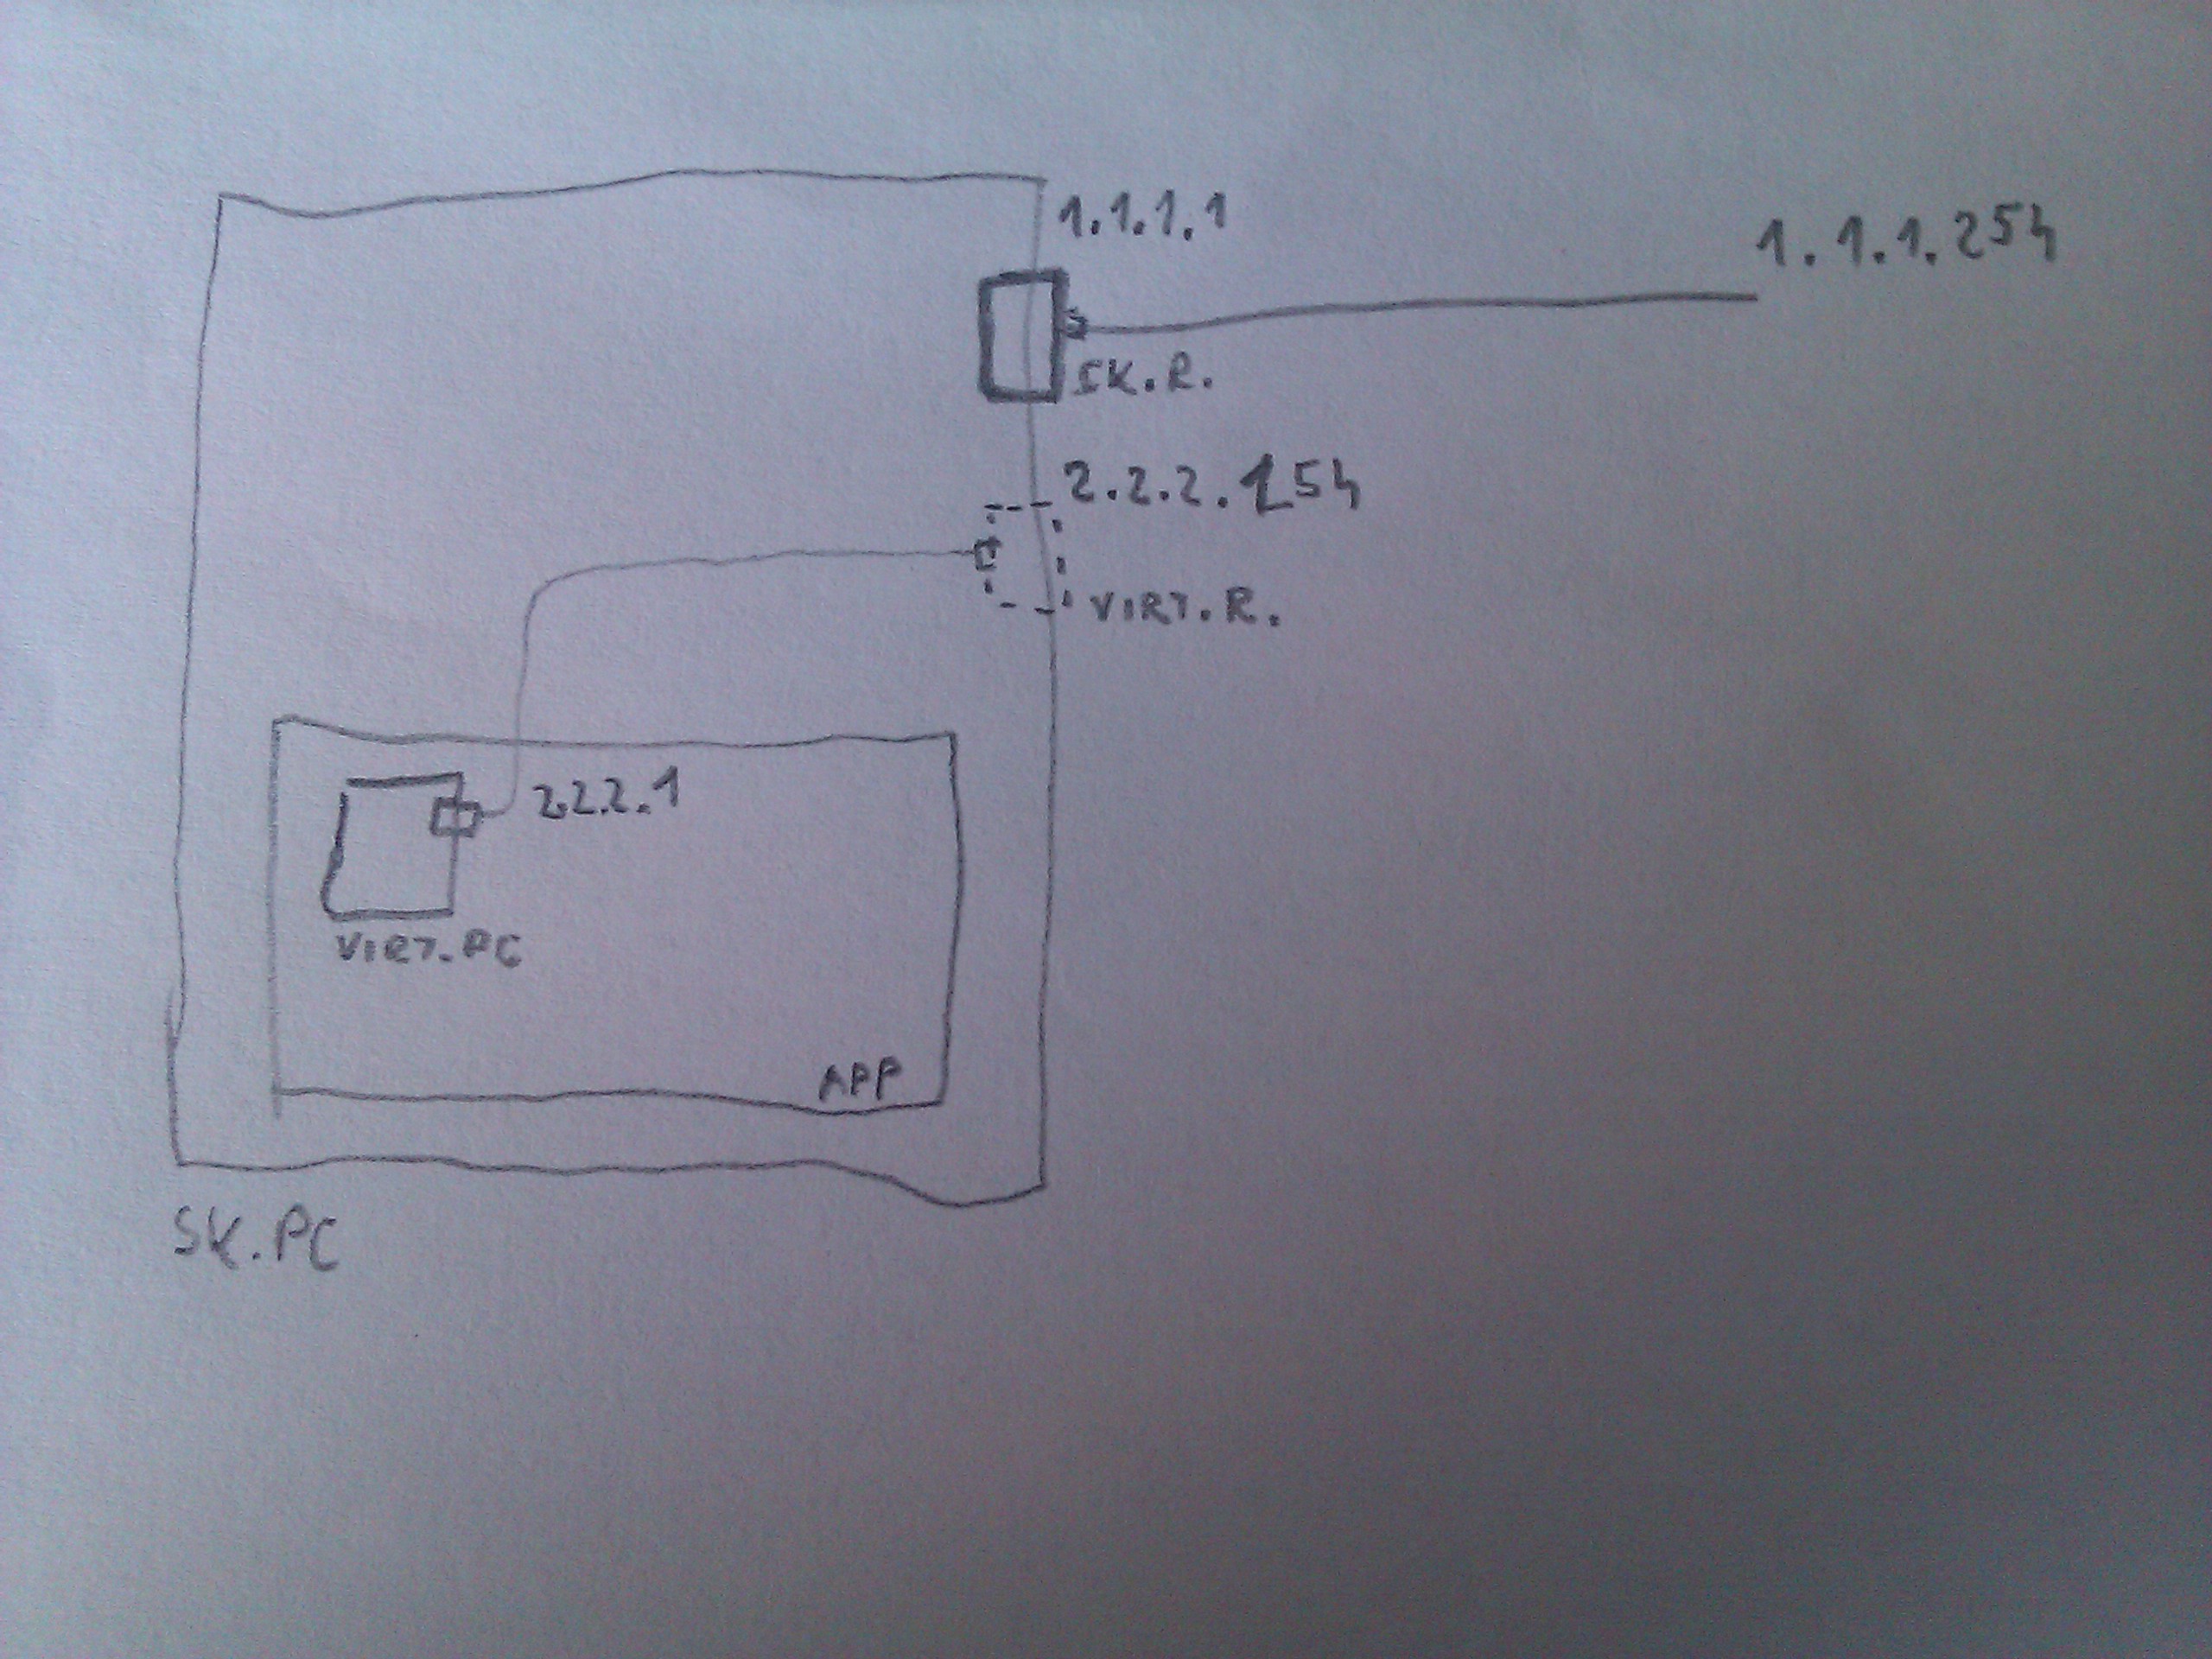 1.1.1.1
1.1.1.254
SK.R.
2.2.2.254
VIRT.R.
2.2.2.1
VIRT.PC
APP
SK.PC